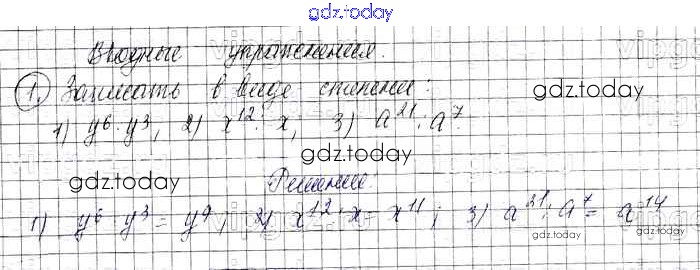 gdz.today
Вводные упражнения.
1. Записать в виде степени:
gdz.today
1) y⁶·y³, 2) x¹² : x, 3) a²¹ : a⁷.
gdz.today
gdz.today
Решение.
1) y⁶·y³ = y⁹; 2) x¹² : x = x¹¹; 3) a²¹ : a⁷ = a¹⁴
gdz.today